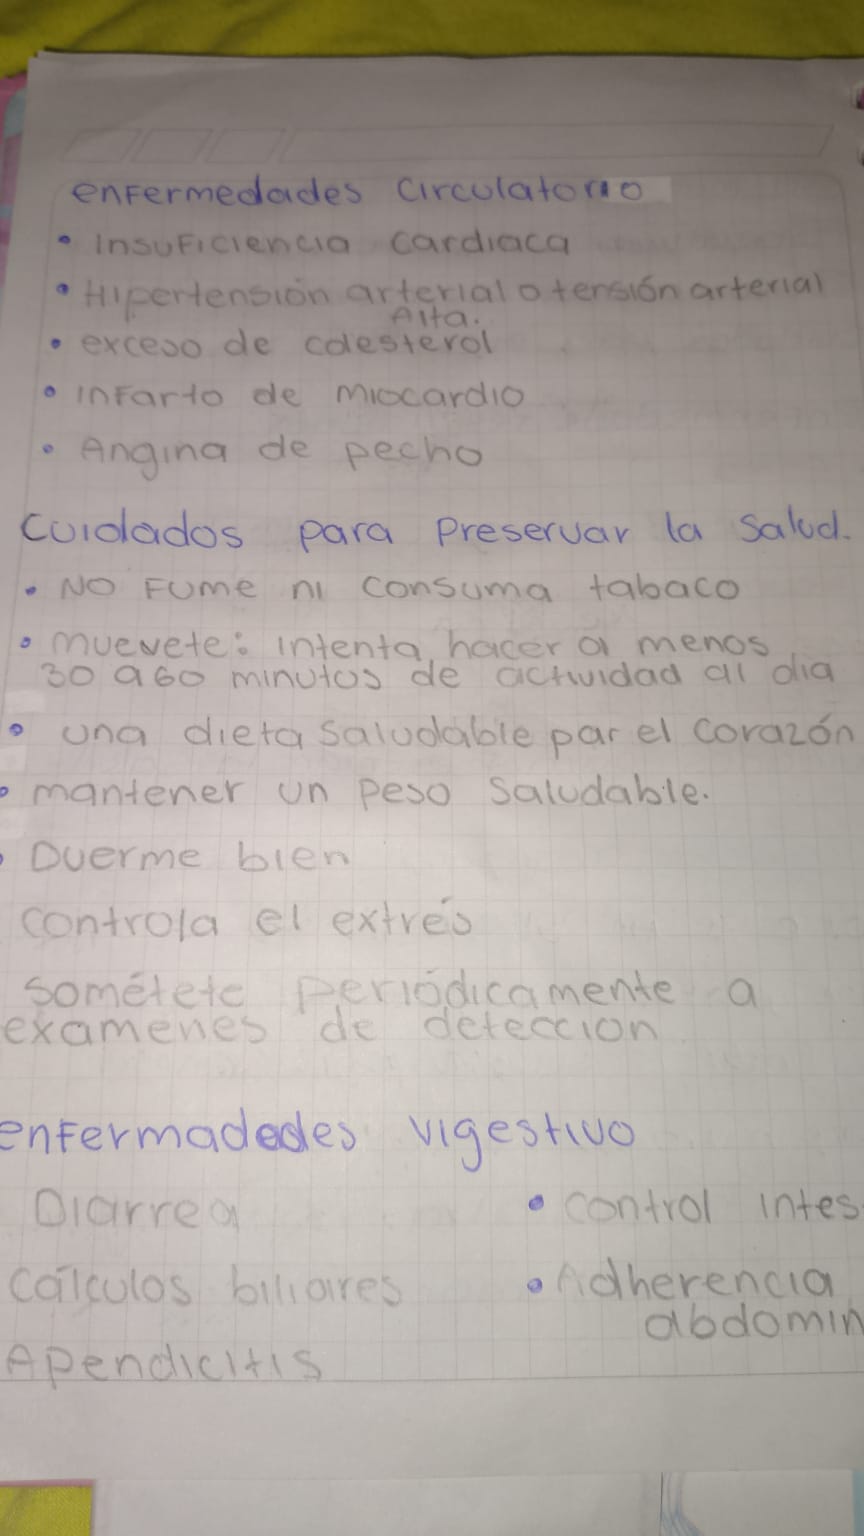 enfermedades circulatorio
• insuficiencia cardiaca
• Hipertensión arterial o tensión arterial
Alta.
• exceso de colesterol
• infarto de miocardio
• Angina de pecho
Cuidados para preservar la salud.
• NO Fume ni consuma tabaco
• muevete: intenta hacer a menos
30 a 60 minutos de actividad al dia
• una dieta saludable par el corazón
• mantener un peso saludable.
• Duerme bien
controla el extrés
sométete periódicamente a
examenes de deteccion
enfermadedes vigestivo
Diarrea • control intes
cálculos biliares • Adherencia
abdomin
Apendicitis